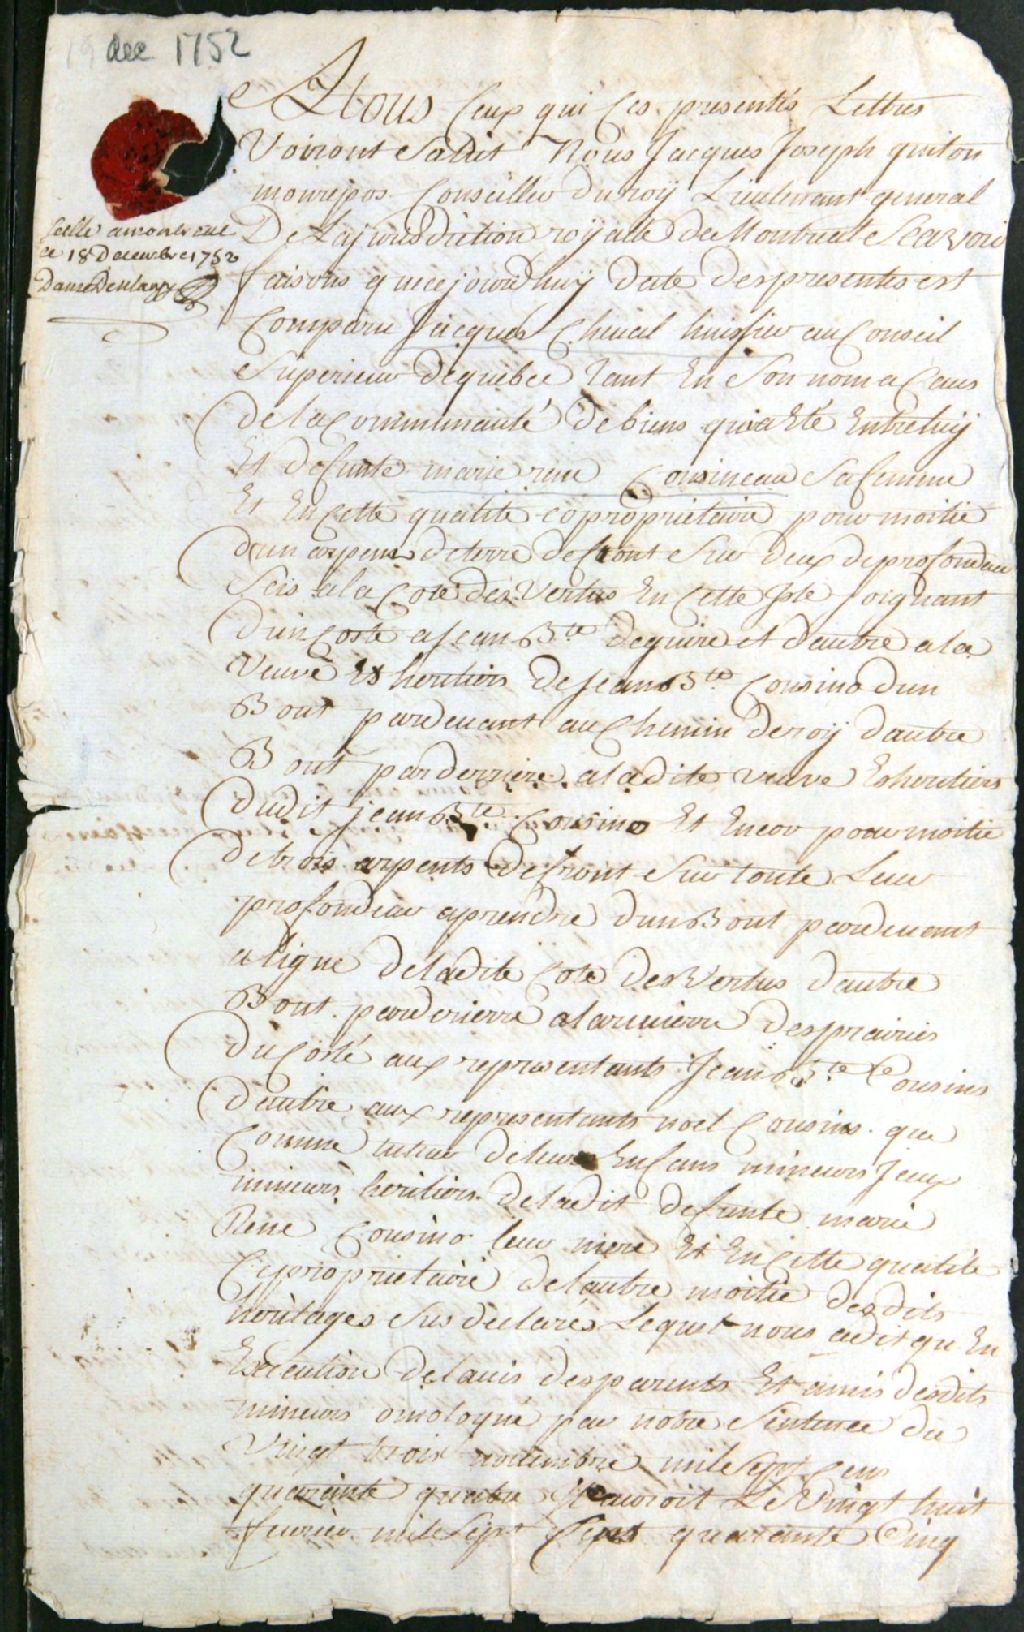 19 dec 1752
Scellé a montreal
ce 18 Decembre 1752
Danré Deblanzy
A tous Ceux qui Ces presentes Lettres
Voiront Salut Nous Jacques Joseph guiton
monrepos Conseiller Du roy Lieutenant general
De La jurisdiction royalle de Montreal Scavoir
faisons que cejourdhuy date des presentes est
Comparu Jacques Cheval huissier au Conseil
Superieur de quebec tant En Son nom a Caus
de la Communauté de biens qui a Eté Entre luy
Et defunte marie rene Cousineau Sa femme
Et En Cette qualité coproprietaire pour moitié
dun arpens de terre de front Sur deux de profondeur
Seis a la Cote des Vertus En Cette Isle joignant
Dun Costé a Jean Bte dequire et dautre a la
Veuve Et heritiers De Jean Bte Cousino dun
Bout pardevant au Chemin De roy dautre
Bout par derriere a la dite veuve Et heritiers
dudit jean Bte Cousino Et Encor pour moitie
de trois arpents De front Sur toute Leur
profondeur a prendre dun Bout pardevant
a ligne de ladite Cote des Vertus dautre
Bout parderierre a la riviere des prairies
du Costé aux representants Jean Bte Cousino
dautre aux representants noel Cousino que
Comme tuteur de leurs Enfans mineurs Jeux
mineurs heritiers de ladit defunte marie
Rene Cousino leur mere Et En Cette qualité
Coproprietaire de lautre moitie desdits
heritages Sus declarés Lequel nous a dit qu En
Execution de lavis des parents Et amis desdits
mineurs omologué par notre Sentence du
Vingt trois novembre mile Sept Cens
quarante quatre il auroit Le Vingt huit
fevrier mile Sept Cent quarante Cinq